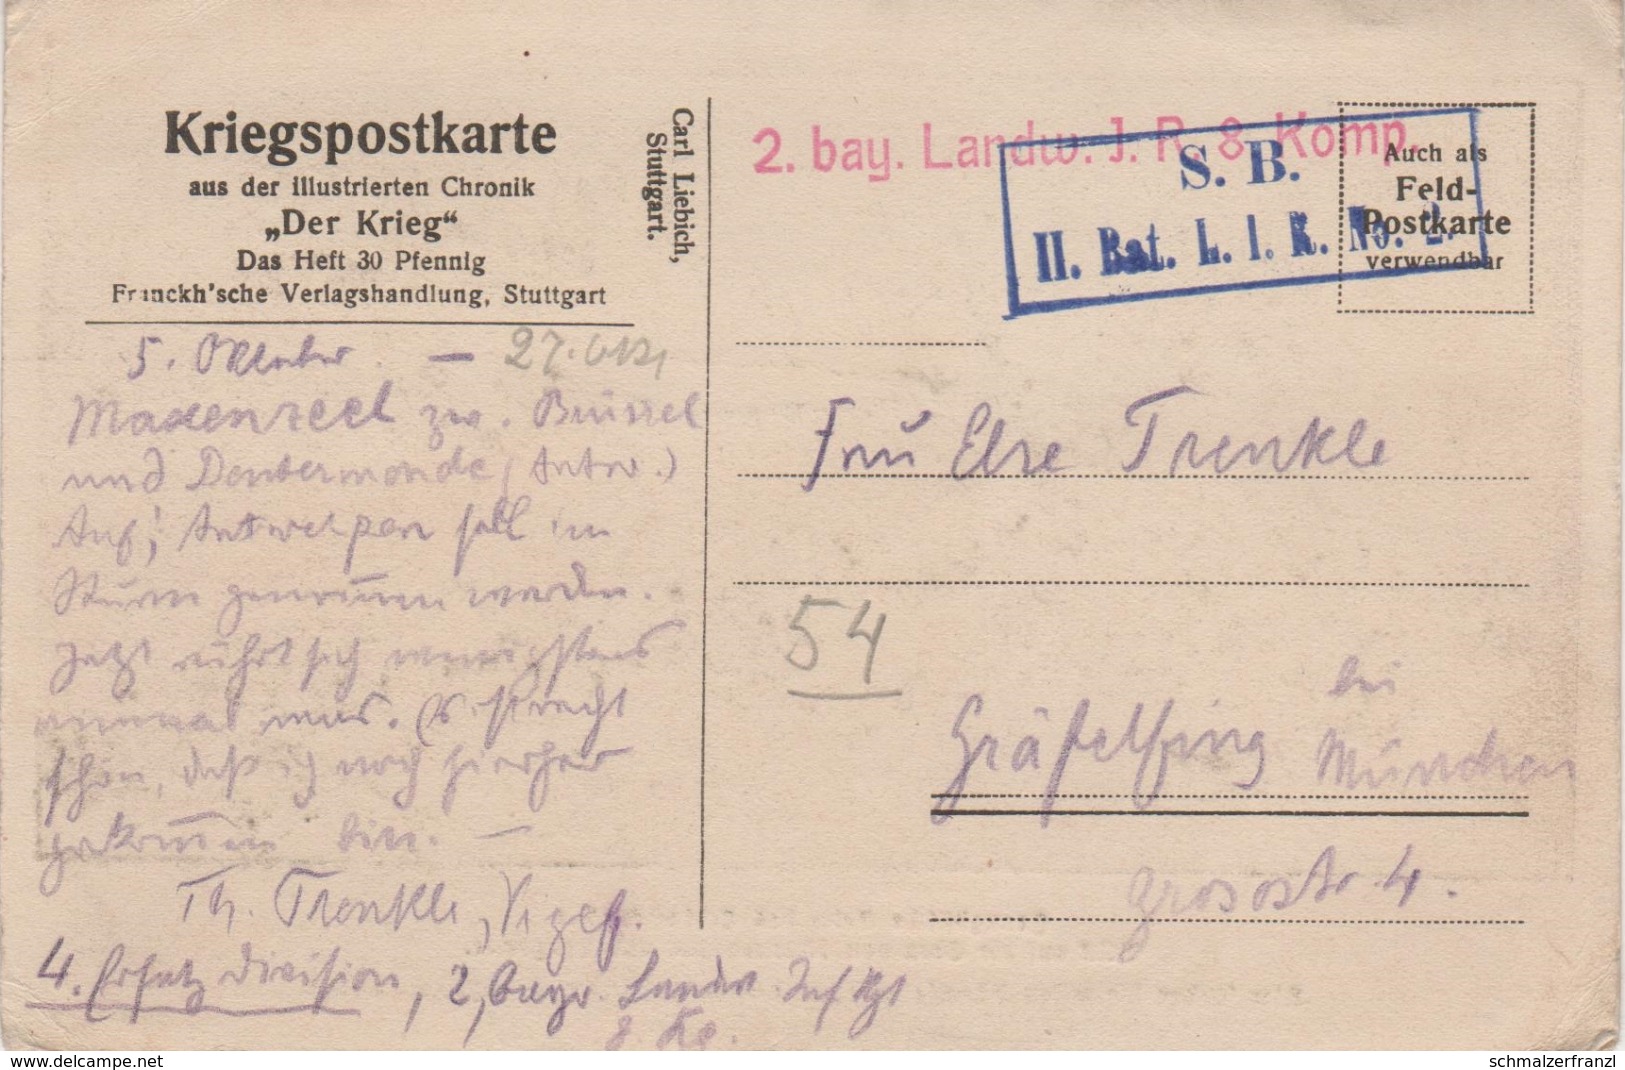 Kriegspostkarte
aus der illustrierten Chronik
„Der Krieg“
Das Heft 30 Pfennig
Franckh'sche Verlagshandlung, Stuttgart
Carl Liebich,
Stuttgart.
5. Oktober. — 27.
Maxenzeel zw. Brüssel
und Dendermonde (Antw.)
Auf; Antwerpen soll im
Sturm genom̅en werden.
Jetzt rührt sich wenigstens
einmal was. Es ist recht
schon, daß ich noch hierher
gekom̅en bin. —
Th. Trenkle, Vizef.
4. Ersatzdivision, 2. bayr. Landw. Inf Rgt
8. Ko.
2. bay. Landw. J. R. 8. Komp.
S. B.
II. Bat. L. I. R. No. 2.
Auch als
Feld-
Postkarte
verwendbar
Frau Else Trenkle
54
Gräfelfing bei
München
Grosostr. 4.
delcampe.net
schmalzerfranzl